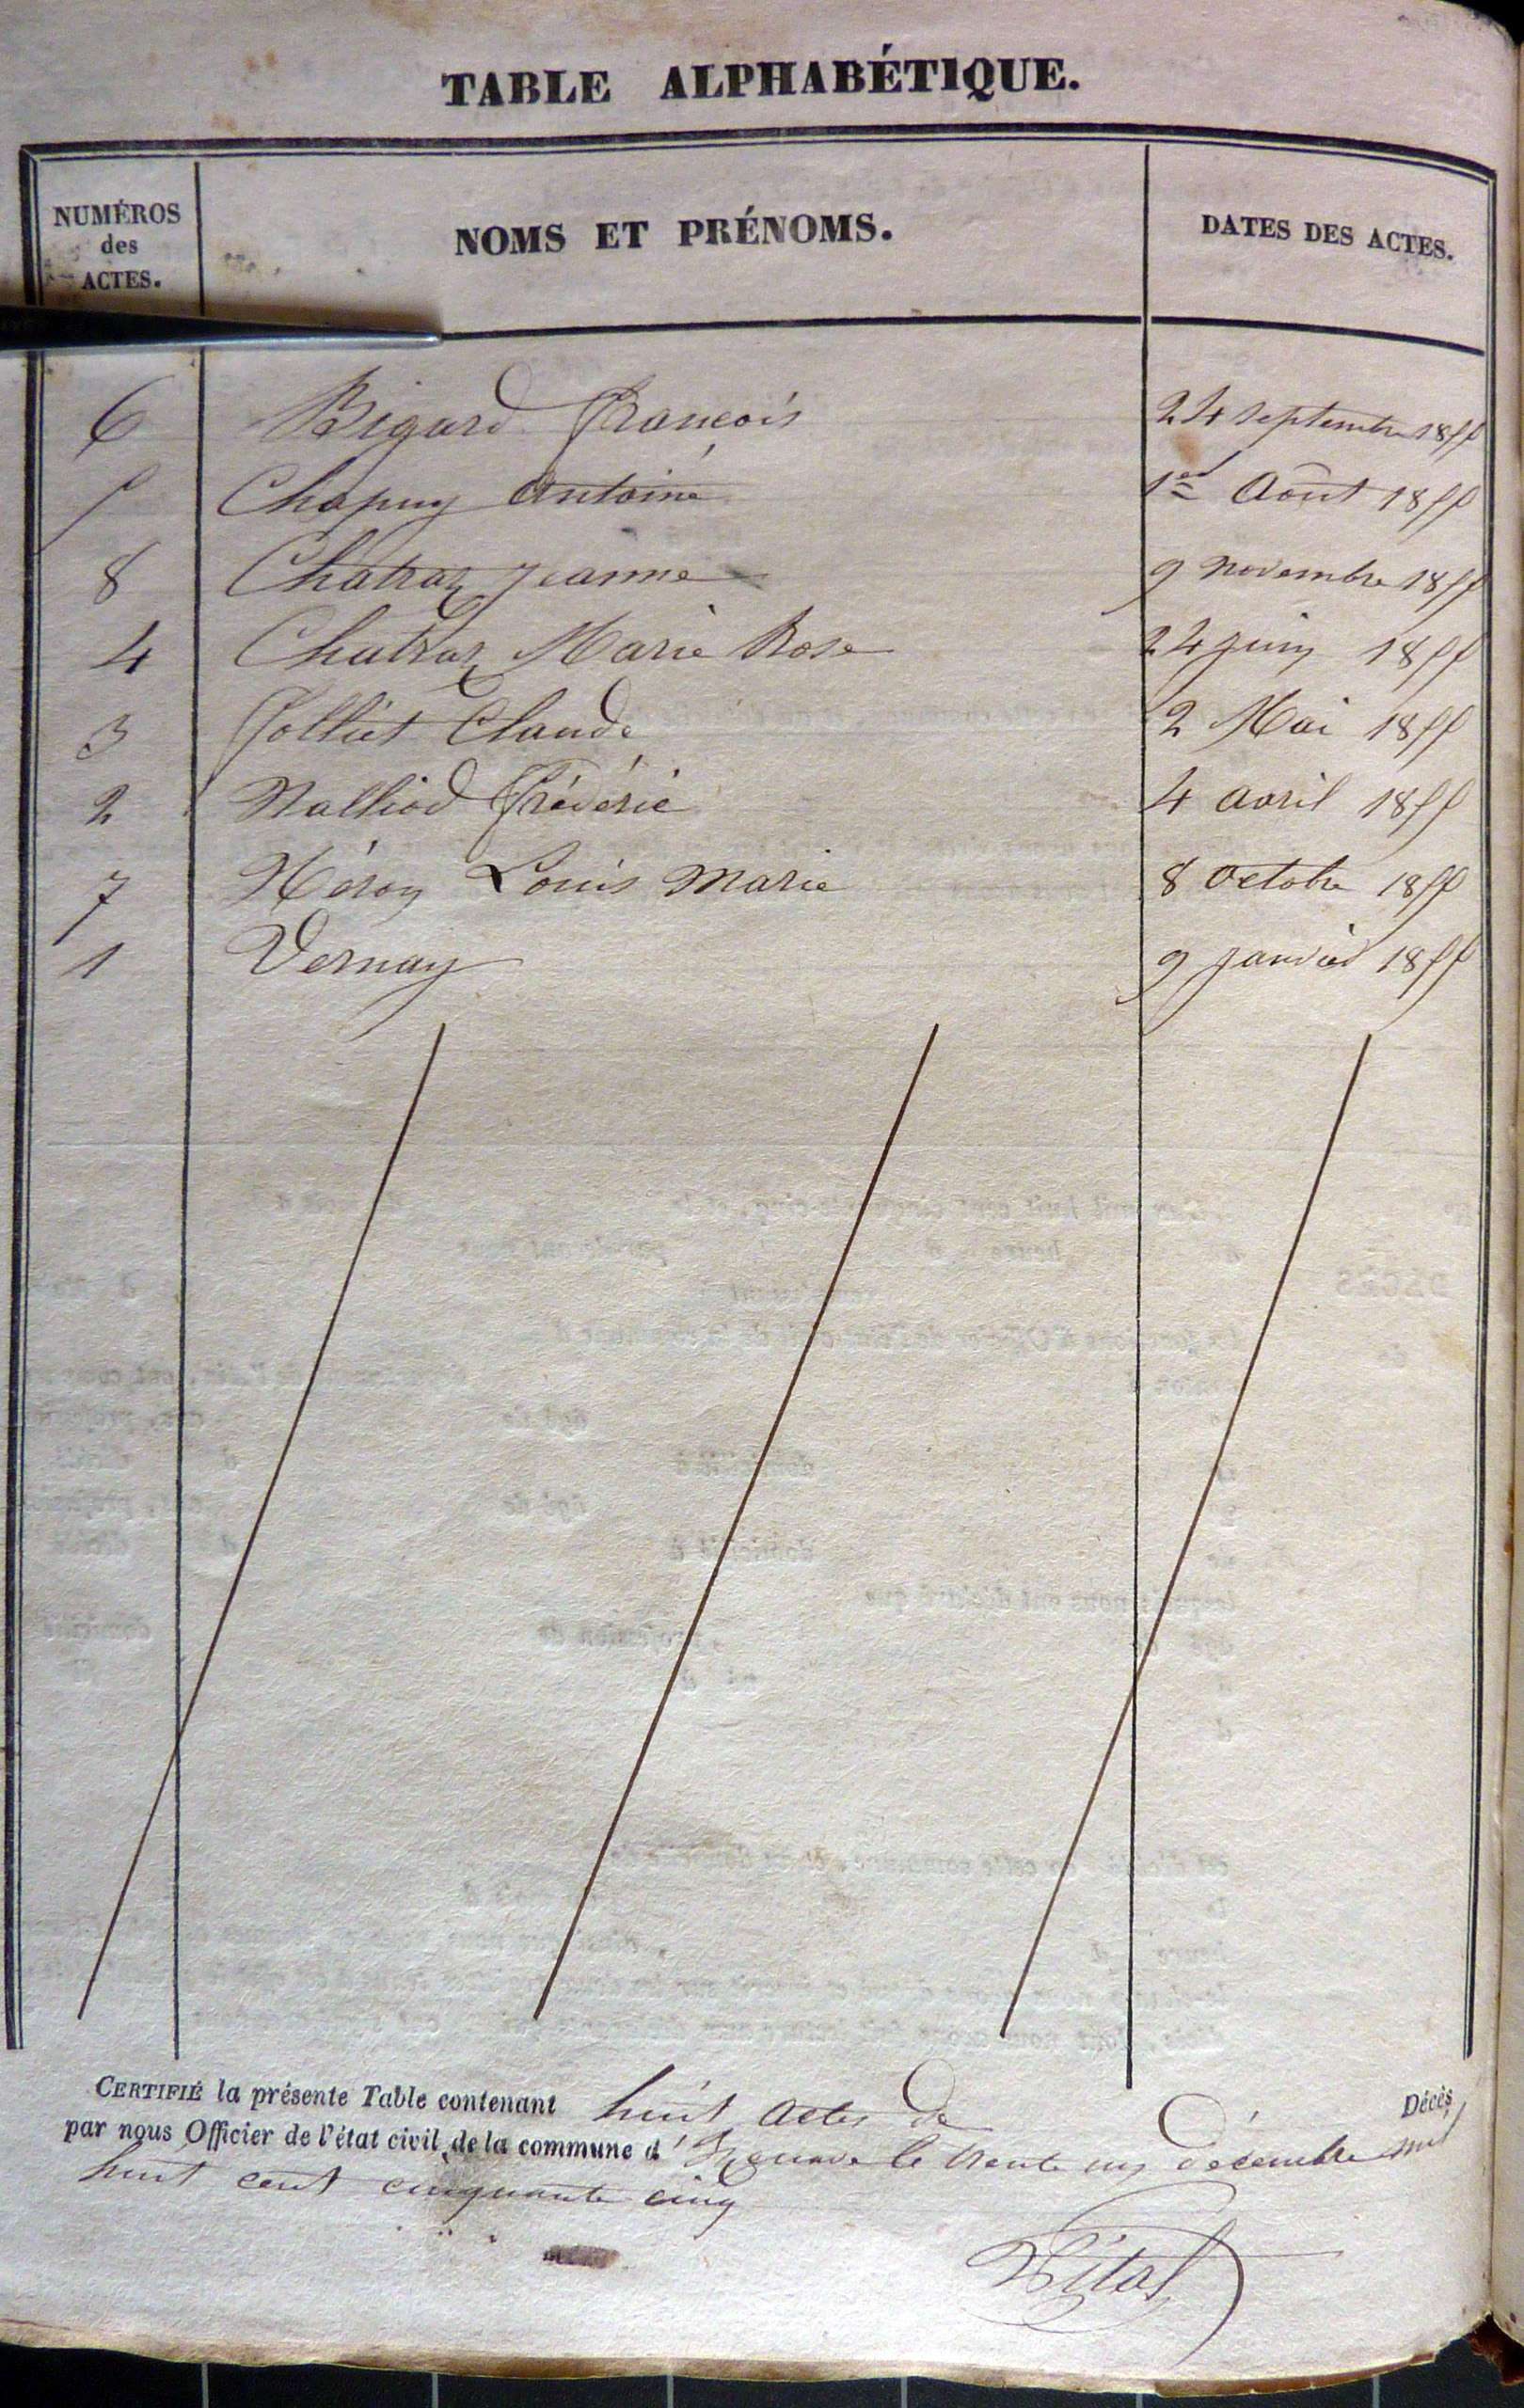 TABLE ALPHABÉTIQUE.
NUMÉROS des ACTES. NOMS ET PRÉNOMS. DATES DES ACTES.
6 Bigard François 24 septembre 1855
5 Chapuy Antoine 1er Août 1855
8 Chatrar Jeanne 9 novembre 1855
4 Chatrar Marie Rose 24 juin 1855
3 Jolliet Claude 2 Mai 1855
2 Nalliod Frédéric 4 avril 1855
7 Néron Louis Marie 8 octobre 1855
1 Vernay 9 janvier 1855
CERTIFIÉ la présente Table contenant huit actes de Décès
par nous Officier de l'état civil de la commune d' le trente un Décembre mil
huit cent cinquante cinq
Vital